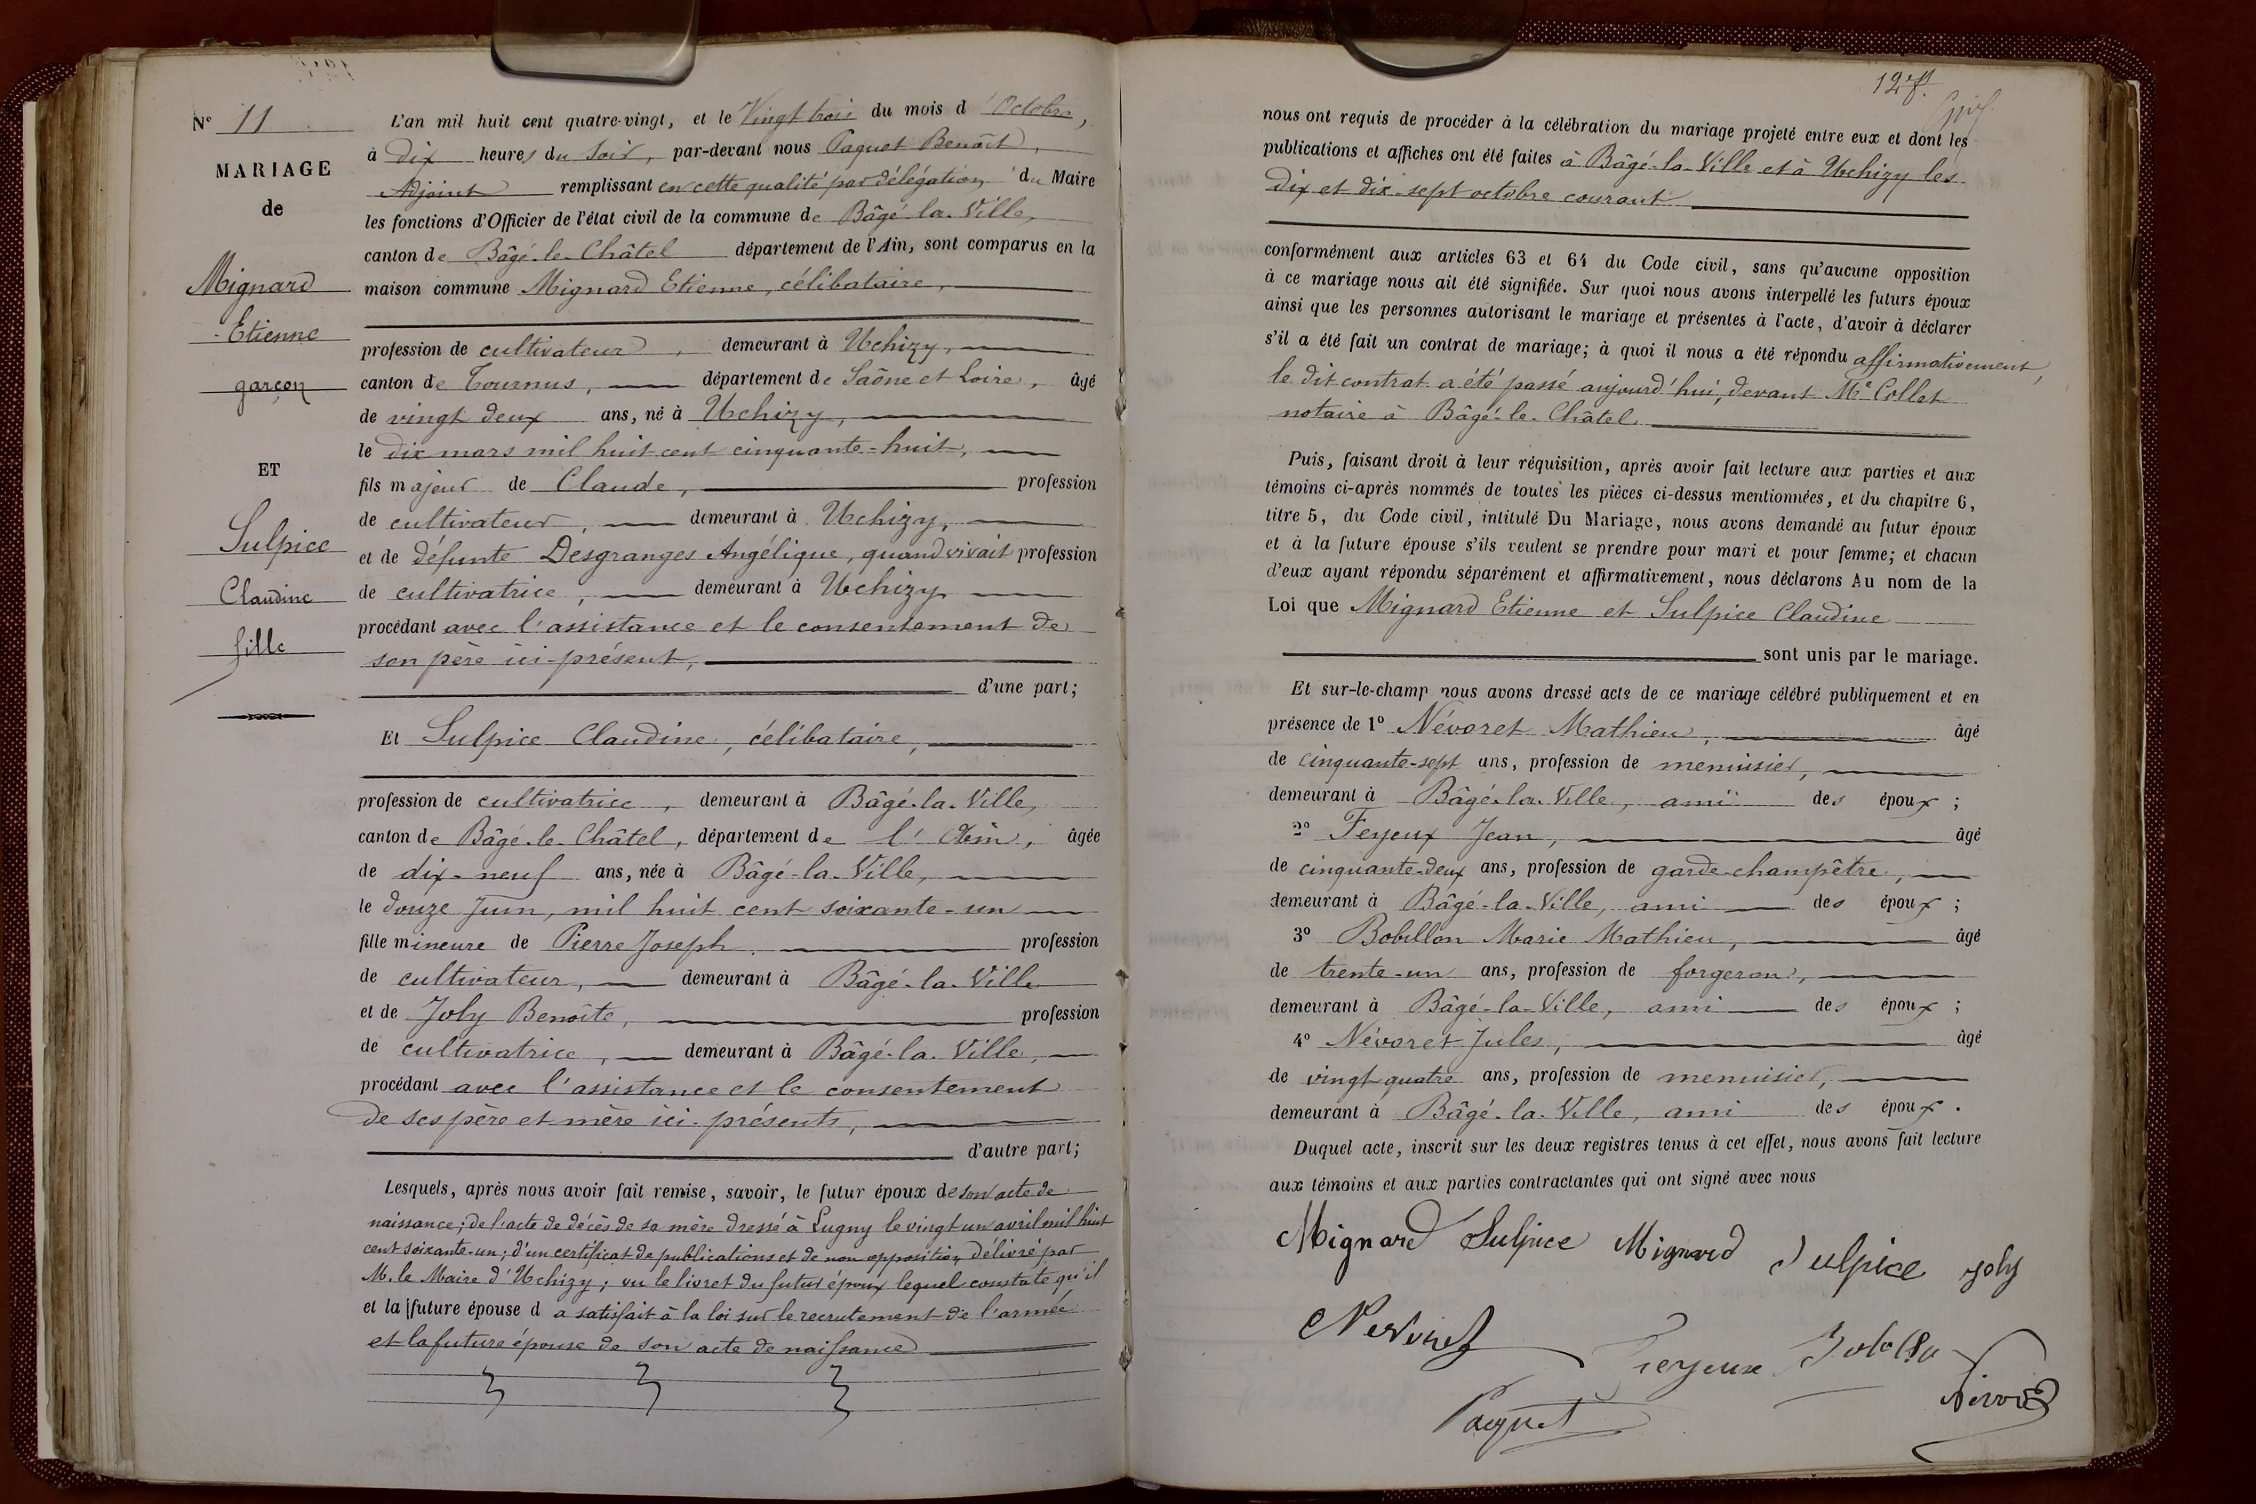 N° 11
MARIAGE
de
Mignard
Etienne
garçon
ET
Sulpice
Claudine
fille
L'an mil huit cent quatre-vingt, et le Vingt trois du mois d'Octobre,
à dix heures du soir, par-devant nous Paquet Benoît,
Adjoint remplissant en cette qualité par délégation du Maire
les fonctions d'Officier de l'état civil de la commune de Bâgé-la-Ville,
canton de Bâgé-le-Châtel département de l'Ain, sont comparus en la
maison commune Mignard Etienne, célibataire,
profession de cultivateur, demeurant à Uchizy,
canton de Tournus, département de Saône et Loire, âgé
de vingt deux ans, né à Uchizy,
le dix mars mil huit cent cinquante-huit,
fils majeur de Claude, profession
de cultivateur, demeurant à Uchizy,
et de défunte Desgranges Angélique, quand vivait profession
de cultivatrice, demeurant à Uchizy
procédant avec l'assistance et le consentement de
son père ici-présent,
d'une part;
Et Sulpice Claudine, célibataire,
profession de cultivatrice, demeurant à Bâgé-la-Ville,
canton de Bâgé-le-Châtel, département de l'Ain, âgée
de dix-neuf ans, née à Bâgé-la-Ville,
le douze Juin, mil huit cent soixante-un
fille mineure de Pierre Joseph profession
de cultivateur, demeurant à Bâgé-la-Ville
et de Joly Benoîte, profession
de cultivatrice, demeurant à Bâgé-la-Ville,
procédant avec l'assistance et le consentement
de ses père et mère ici-présents,
d'autre part;
Lesquels, après nous avoir fait remise, savoir, le futur époux de son acte de
naissance; de l'acte de décès de sa mère dressé à Lugny le vingt un avril mil huit
cent soixante-un; d'un certificat de publications et de non opposition délivré par
M. le Maire d'Uchizy; vu le livret du futur époux lequel constate qu'il
et la future épouse d a satisfait à la loi sur le recrutement de l'armée
et la future épouse de son acte de naissance
128.
nous ont requis de procéder à la célébration du mariage projeté entre eux et dont les
publications et affiches ont été faites à Bâgé-la-Ville et à Uchizy les
dix et dix-sept octobre courant
conformément aux articles 63 et 64 du Code civil, sans qu'aucune opposition
à ce mariage nous ait été signifiée. Sur quoi nous avons interpellé les futurs époux
ainsi que les personnes autorisant le mariage et présentes à l'acte, d'avoir à déclarer
s'il a été fait un contrat de mariage; à quoi il nous a été répondu affirmativement,
le dit contrat a été passé aujourd'hui, devant Me Collet
notaire à Bâgé-le-Châtel
Puis, faisant droit à leur réquisition, après avoir fait lecture aux parties et aux
témoins ci-après nommés de toutes les pièces ci-dessus mentionnées, et du chapitre 6,
titre 5, du Code civil, intitulé Du Mariage, nous avons demandé au futur époux
et à la future épouse s'ils veulent se prendre pour mari et pour femme; et chacun
d'eux ayant répondu séparément et affirmativement, nous déclarons Au nom de la
Loi que Mignard Etienne et Sulpice Claudine
sont unis par le mariage.
Et sur-le-champ nous avons dressé acte de ce mariage célébré publiquement et en
présence de 1° Névoret Mathieu, âgé
de cinquante-sept ans, profession de menuisier,
demeurant à Bâgé-la-Ville, ami des époux;
2° Feyeux Jean, âgé
de cinquante-deux ans, profession de garde-champêtre,
demeurant à Bâgé-la-Ville, ami des époux;
3° Bobillon Marie Mathieu, âgé
de trente-un ans, profession de forgeron,
demeurant à Bâgé-la-Ville, ami des époux;
4° Névoret Jules, âgé
de vingt quatre ans, profession de menuisier,
demeurant à Bâgé-la-Ville, ami des époux.
Duquel acte, inscrit sur les deux registres tenus à cet effet, nous avons fait lecture
aux témoins et aux parties contractantes qui ont signé avec nous
Mignard Sulpice Mignard Sulpice Joly
Nevoret Feyeux
Paquet